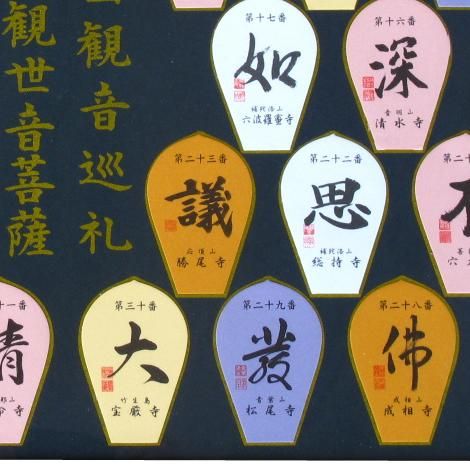 観世音菩薩
観音巡礼
第十六番
深
音羽山
清水寺
第十七番
如
補陀洛山
六波羅蜜寺
第二十二番
思
補陀洛山
総持寺
第二十三番
議
応頂山
勝尾寺
第二十八番
佛
成相山
成相寺
第二十九番
發
青葉山
松尾寺
第三十番
大
竹生島
宝厳寺
十一番
清
命寺